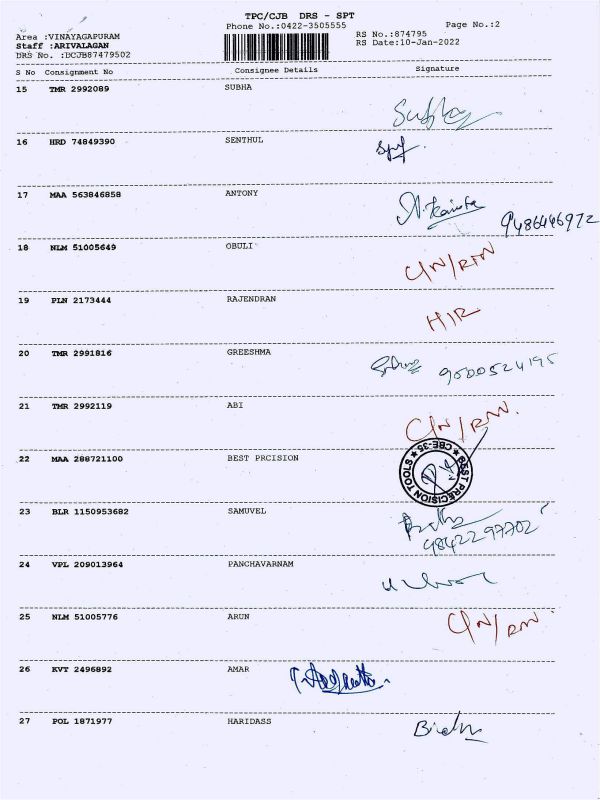 TPC/CJB DRS - SPT
Phone No.:0422-3505555
Page No.:2
Area :VINAYAGAPURAM
Staff :ARIVALAGAN
DRS No. :DCJB87479502
RS No.:874795
RS Date:10-Jan-2022
S No Consignment No Consignee Details Signature
15 TMR 2992089 SUBHA
16 HRD 74849390 SENTHUL
17 MAA 563846858 ANTONY
9486446972
18 NLM 51005649 OBULI
C/N/RTN
19 PLN 2173444 RAJENDRAN
20 TMR 2991816 GREESHMA
9500524195
21 TMR 2992119 ABI
22 MAA 288721100 BEST PRCISION
BEST PRECISION TOOLS CBE-35
23 BLR 1150953682 SAMUVEL
9842297702
24 VPL 209013964 PANCHAVARNAM
25 NLM 51005776 ARUN
26 KVT 2496892 AMAR
27 POL 1871977 HARIDASS